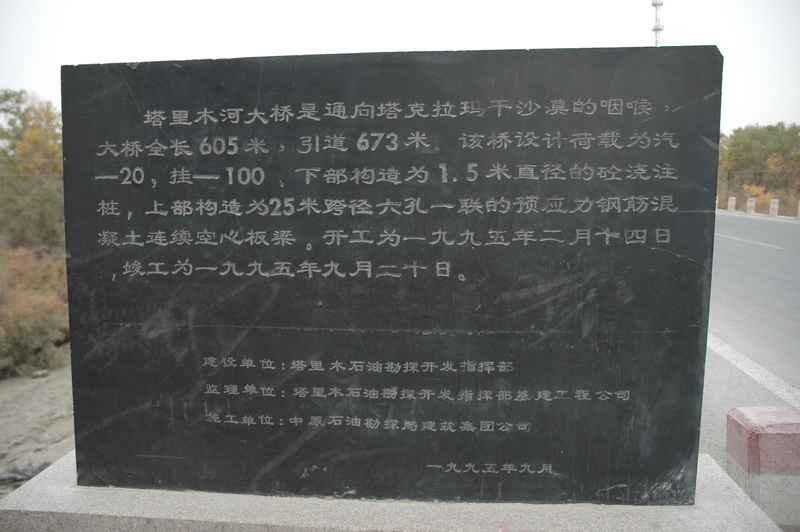 塔里木河大桥是通向塔克拉玛干沙漠的咽喉，
大桥全长605米，引道673米。该桥设计荷载为汽
—20，挂—100、下部构造为1.5米直径的砼浇注
桩，上部构造为25米跨径六孔一联的预应力钢筋混
凝土连续空心板梁。开工为一九九五年二月十四日
，竣工为一九九五年九月二十日。
建设单位：塔里木石油勘探开发指挥部
监理单位：塔里木石油勘探开发指挥部基建工程公司
施工单位：中原石油勘探局建筑集团公司
一九九五年九月